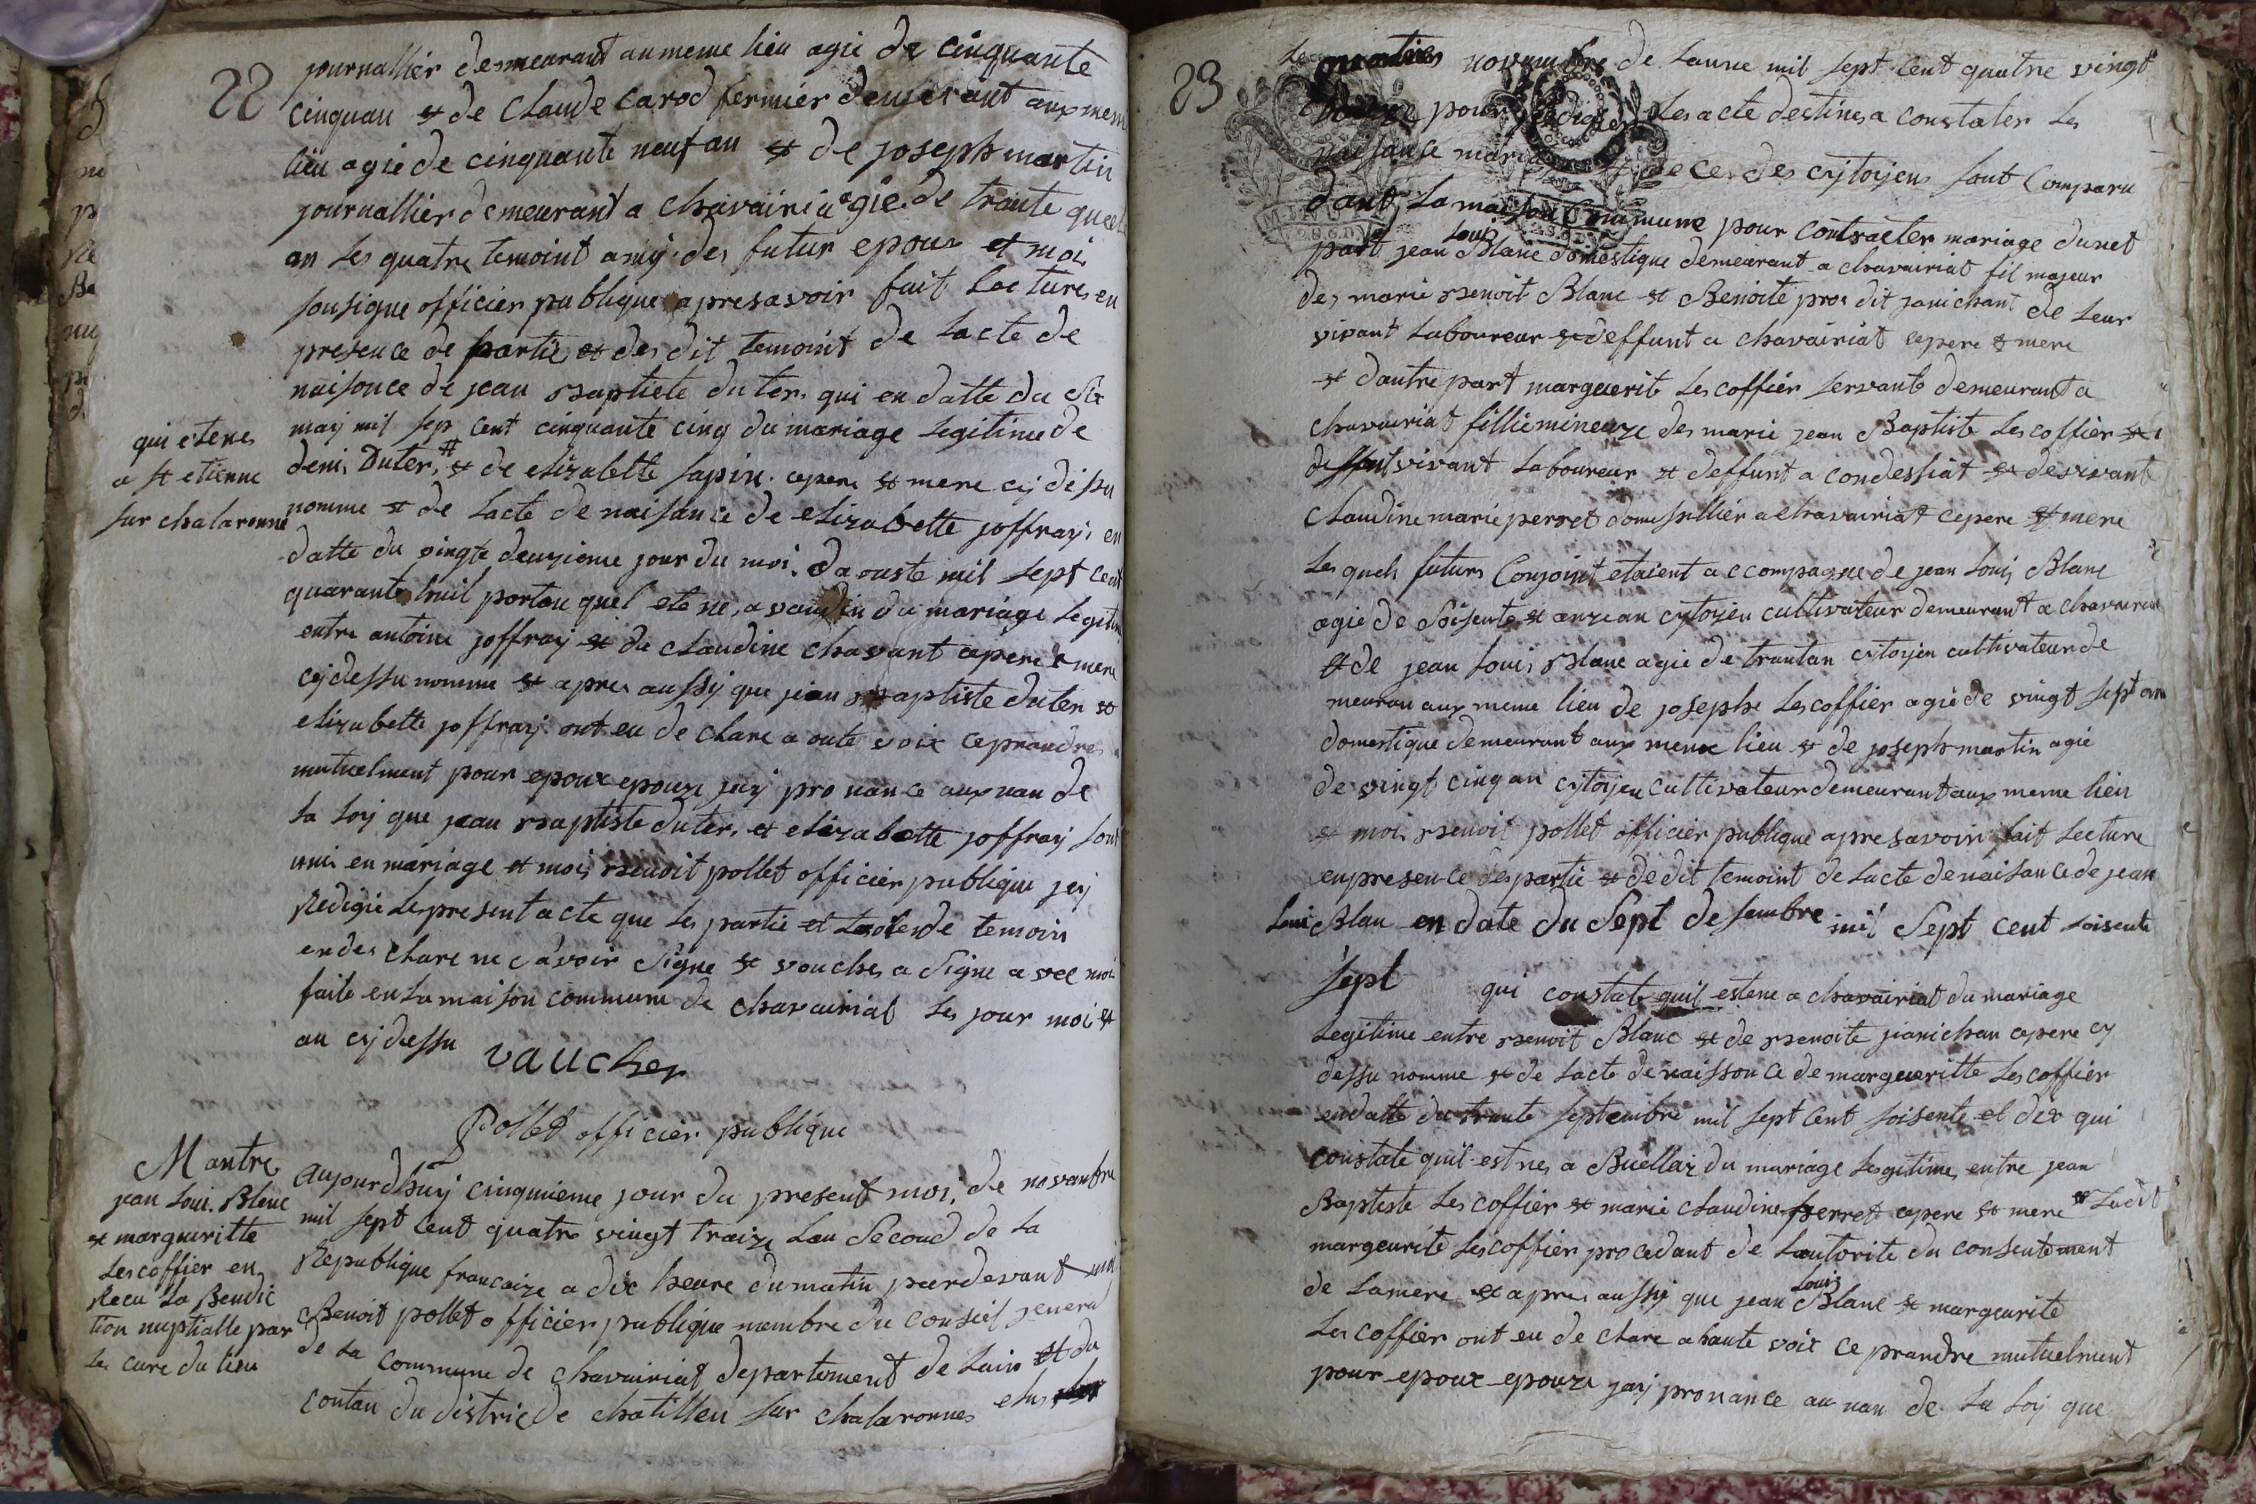 22
journallier desmeurant aumeme lieu agié de cinquante
cinquan et de Claude Carod fermier demerant aux mem
lieu agié de cinquante neuf an et de joseph martin
journallier demeurant a chavairia agié de trante
an les quatre temoint amij des futur epoux et moi
sousigne officier publique apresavoir fait Lecture en
presence de partie et des dit temoint de Lacte de
naisonce de jean Baptiete duter qui en datte du Six
maij mil sep Cent cinquante cinq du mariage Legitime de
qui etenes
a St etienne
sur chalaronne
denis Duter # et de elizabette sapin cepere et mere cij dessu
nomme et de Lacte de naisance de elizabette joffraij en
datte du vingte deuzieme jour du moi daouste mil sept cent
quarante huil portan quel ete ne a vandin du mariage Legitim
entre antoine joffraij et du claudine chavant cepere et mere
cij dessu nomme et apres aussij que jean Baptiste duter et
elizabette joffraij ont eu de clare a oute voix ceprandres
mutuelment pour epoux epouze jaij pro nonce aux nan de
La Loij que jean Baptiste duter et elizabette joffraij sont
unis en mariage et moi Benoit pollet officier publique jaij
Redigié Lepresent acte que Les partie et temoin
en des clare ne savoir Signe et voucher a Signe a vec moi
faite en La maison commune de chavairiat Les jour moi et
an cij dessu
vaucher
Pollet officier publique
Mantre
jean Loui Blanc
et margueritte
Lescoffier en
Recu La Bendic
tion nuptialle par
Les cure du lieu
aujourdhuij cinquieme jour du present moi de novanbre
mil sept Cent quatre vingt traize Lan Second de La
Republique francaize a dix heure dumatin pardevant moi
Benoit pollet officier publique membre du conseil jeneral
de La commune de chavairiat departement de Lain et du
contan du distric de chatilleu sur chalaronnes elus
23
novambre de Lanne mil sept cent quatre vingt
pour Rediger Les acte destines a constaler Les
naisance mariage et deces des cijtoijens sont Comparu
dant La maison Commune pour contracter mariage dunet
part jean Loui Blanc domestique demeurant a chavairiat fil majeur
des marie Benoit Blanc et Benoite pros dit janichant de Leur
vivant Laboureur et deffunt a chavairiat cepere et mere
et dautre part marguerit Lescoffier servante demeurant a
chavairiat fillie mineuze des marie jean Baptiste Lescoffier et
de son vivant Laboureur et deffunt a condessiat et desvivante
Claudine marie perret domisillier a chavairiat cepere et mere
Lesquels futurs Conjoint etaient accompagne de jean Louis Blanc
agié de Soisente et onze an cytoyen cultivateur demeurant a chavairiat
et de jean Louis Blanc agié de trantan citoijen cultivateur de
meurau aux meme lieu de josephe Lescoffier agié de vingt sept an
domestique demeurant aux meme lieu et de joseph martin agié
de vingt cinq an cijtoijen cultivateur demeurant aux meme lieu
et moi Benoit pollet officier publique apresavoir fait Lecture
enpresence des partie et de dit temoint de Lacte denaisance de jean
Loui Blan en date du Sept desambre mil Sept cent soisente
Sept qui constate quil estene a chavairiat du mariage
Legitime entre Benoit Blanc et de Benoite jianichan cepere cy
dessu nomme et de Lacte de naissonce de margueritte Lescoffier
endatte du trante Septembre mil sept Cent soisente et dix qui
constate quil est nes a Buellaz du mariage Legitime entre jean
Baptiste Lescoffier et marie claudine perret cepere et mere # Ladit
margeurite Lescoffier procedant de Lautorite du consentement
de Lamere et apres aussij que jean Louis Blanc et margeurite
Lescoffier ont eu de clare a haute voix ce prandre mutuelment
pour epoux epouze jaij pronance au nan de La Loij que